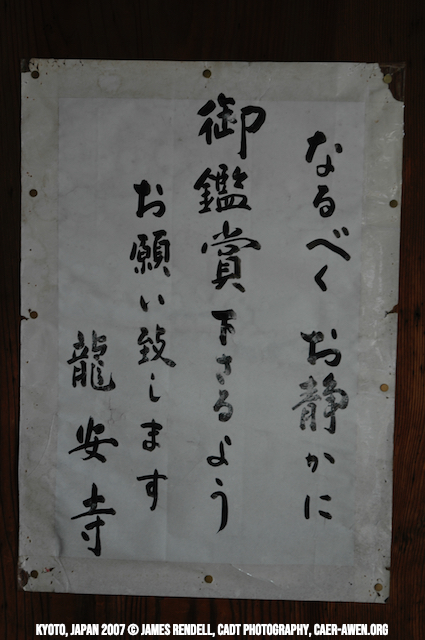 なるべく お静かに
御鑑賞下さるよう
お願い致します
龍安寺
KYOTO, JAPAN 2007 © JAMES RENDELL, CADT PHOTOGRAPHY, CAER-AWEN.ORG